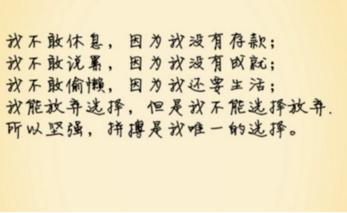 我不敢休息，因为我没有存款；
我不敢说累，因为我没有成就；
我不敢偷懒，因为我还要生活；
我能放弃选择，但是我不能选择放弃.
所以坚强，拼搏是我唯一的选择。